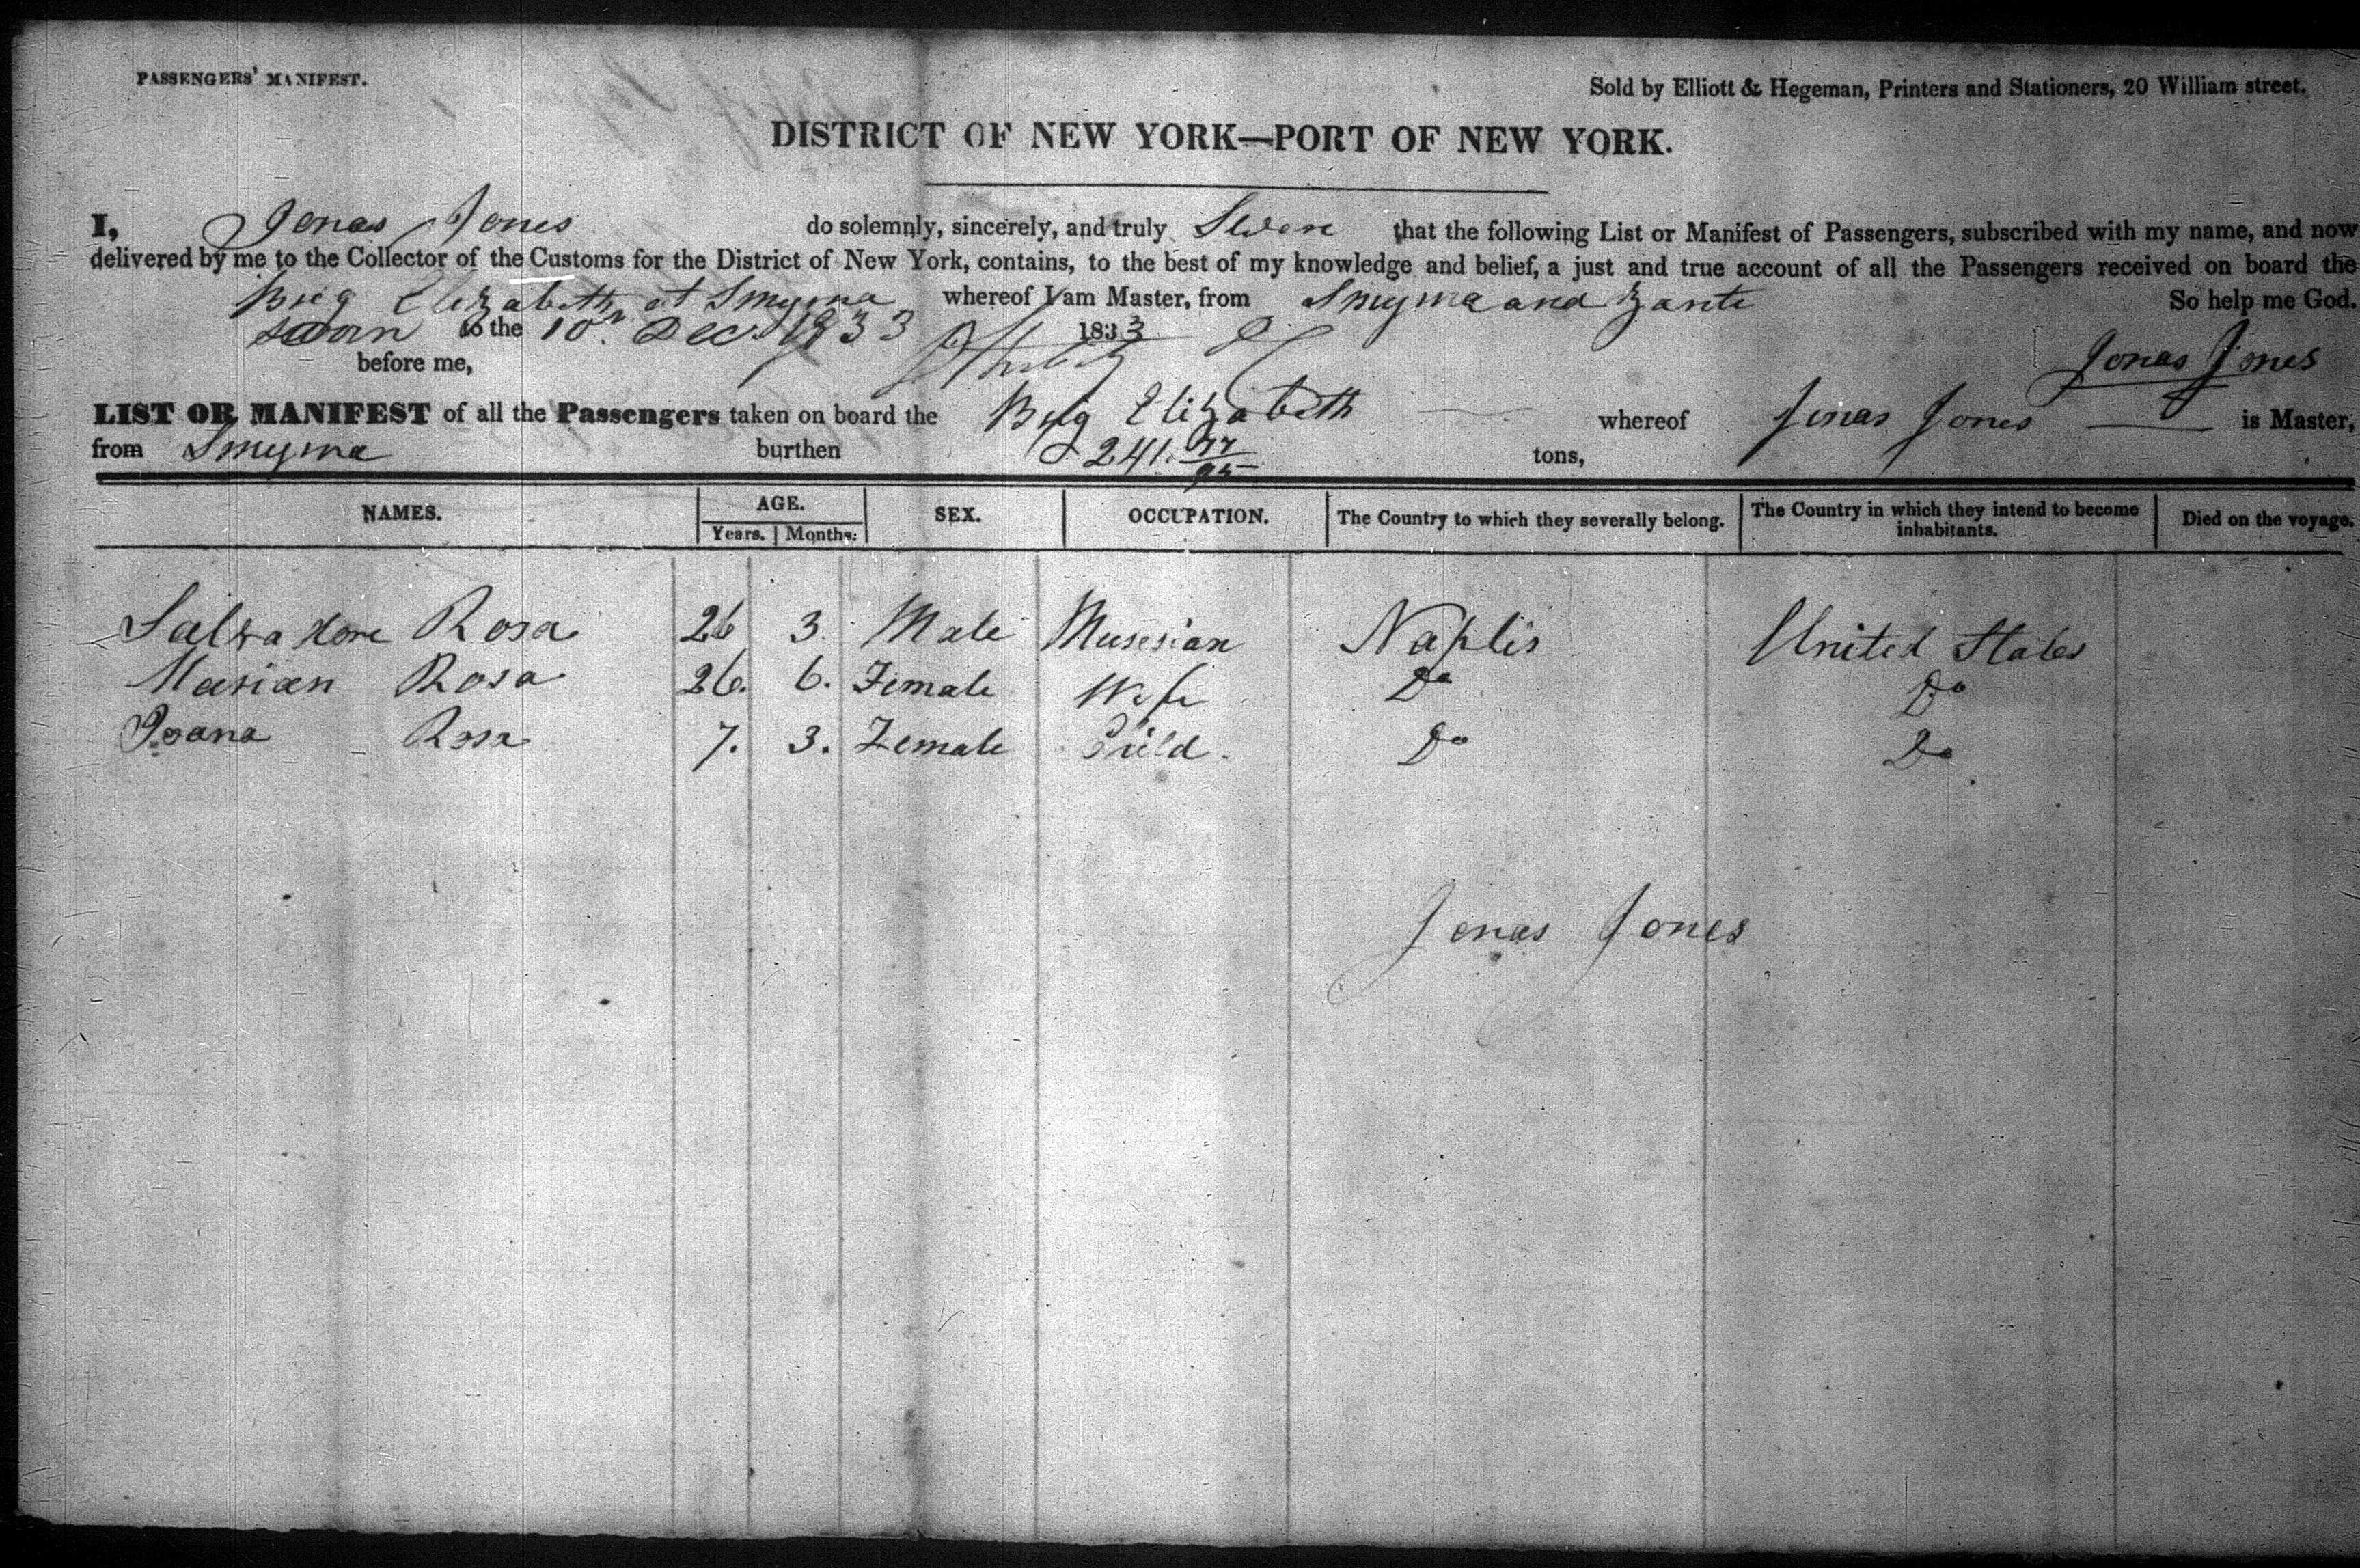 PASSENGERS' MANIFEST. Sold by Elliott & Hegeman, Printers and Stationers, 20 William street.
DISTRICT OF NEW YORK—PORT OF NEW YORK.
I, Jonas Jones do solemnly, sincerely, and truly Swear that the following List or Manifest of Passengers, subscribed with my name, and now
delivered by me to the Collector of the Customs for the District of New York, contains, to the best of my knowledge and belief, a just and true account of all the Passengers received on board the
Brig Elizabeth at Smyrna whereof I am Master, from Smyrna and Zante So help me God.
Sworn to the 10th Dec. 1833 1833
before me, Jonas Jones
LIST OR MANIFEST of all the Passengers taken on board the Brig Elizabeth whereof Jonas Jones is Master,
from Smyrna burthen 241 tons,
NAMES. AGE. SEX. OCCUPATION. The Country to which they severally belong. The Country in which they intend to become inhabitants. Died on the voyage.
Years. Months.
Salvadore Rosa 26 3 Male Musesian Naplis United States
Marian Rosa 26. 6. Female Wife Do Do
Rosa 7. 3. Female Child. Do Do
Jonas Jones